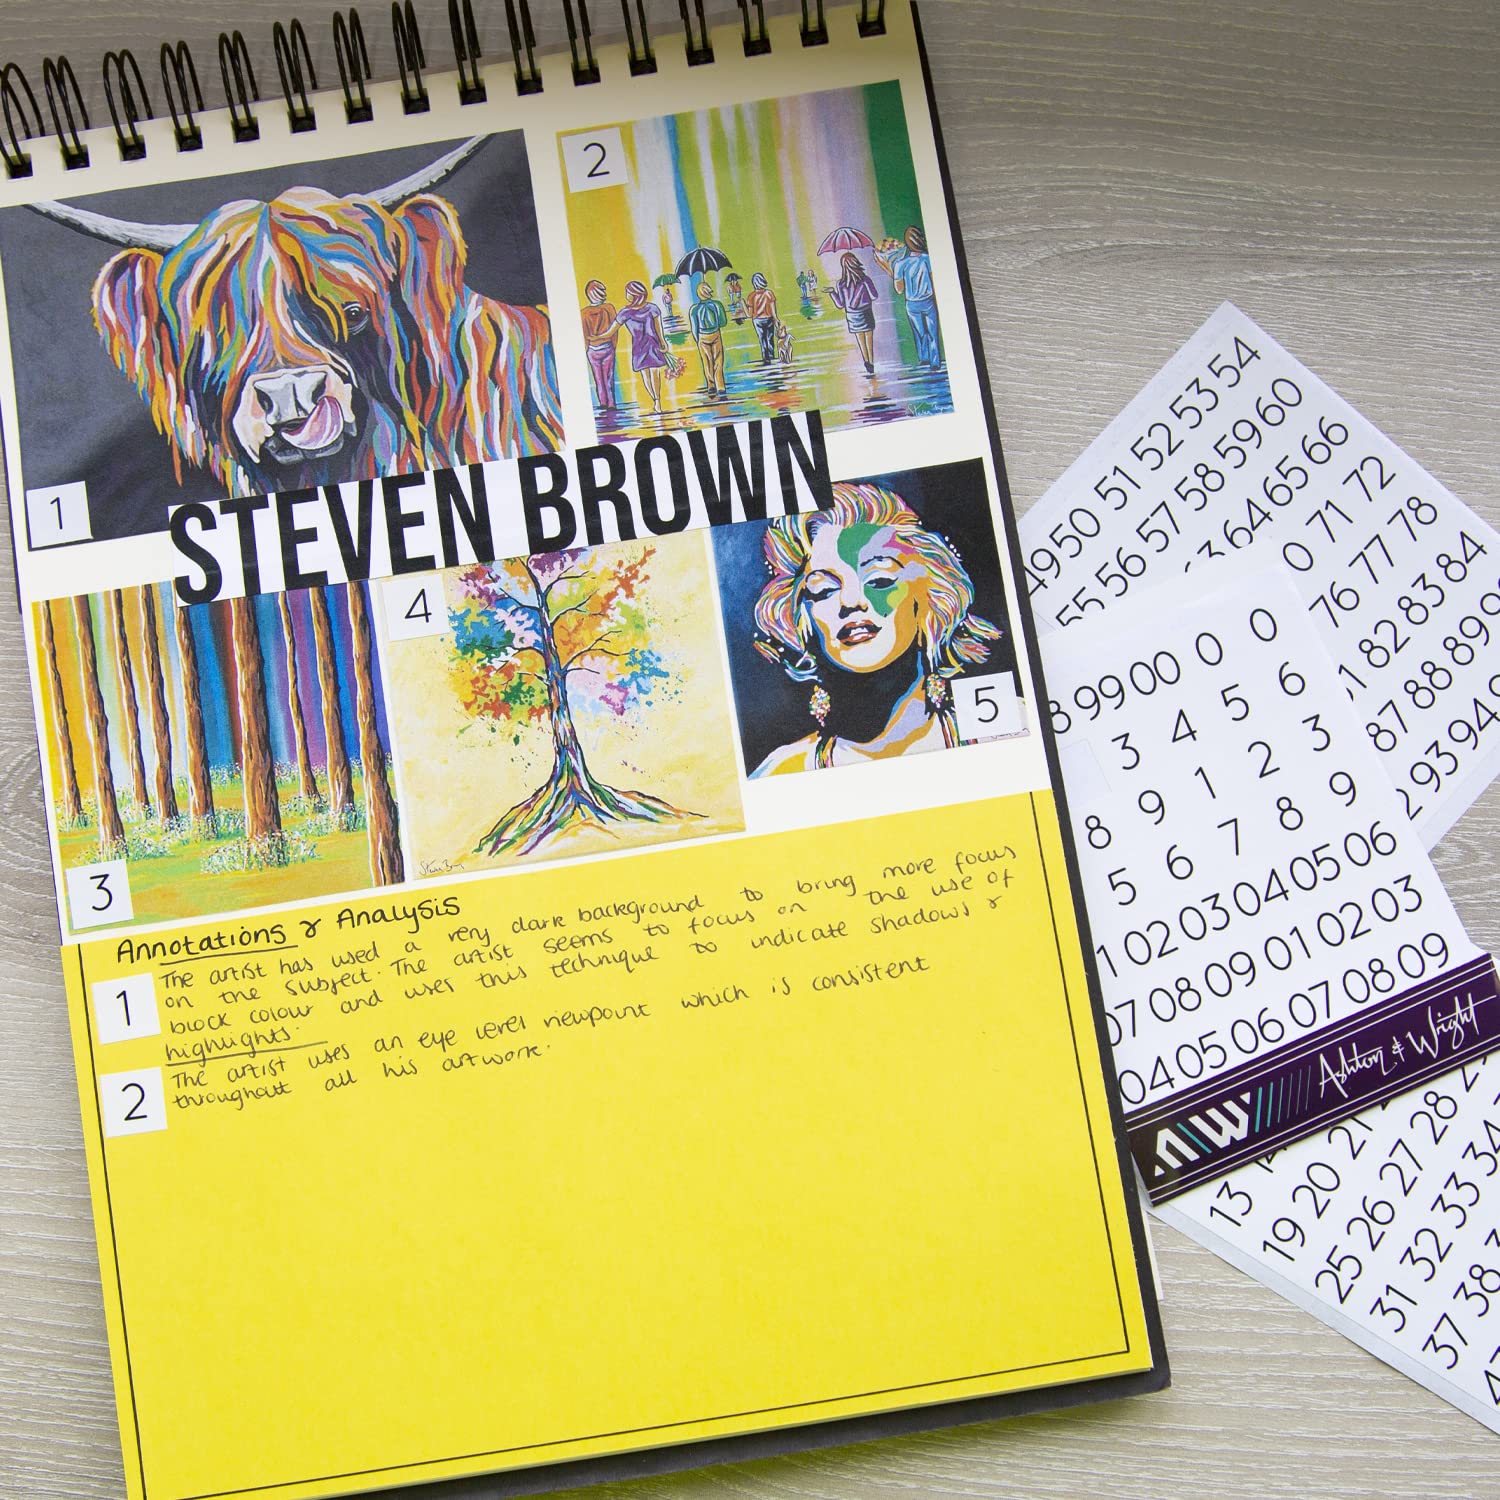 2
1
STEVEN BROWN
4
5
3
Annotations & Analysis
1
The artist has used a very dark background to bring more focus
on the subject. The artist seems to focus on the use of
block colour and uses this technique to indicate shadows &
highlights.
2
The artist uses an eye level viewpoint which is consistent
throughout all his artwork.
49 50 51 52 53 54
55 56 57 58 59 60
64 65 66
71 72
76 77 78
82 83 84
87 88 89
93 94
99 00 0 0
3 4 5 6
8 9 1 2 3
5 6 7 8 9
02 03 04 05 06
08 09 01 02 03
04 05 06 07 08 09
AW Ashton & Wright
13
19 20 21
25 26 27 28
31 32 33 34
37 38